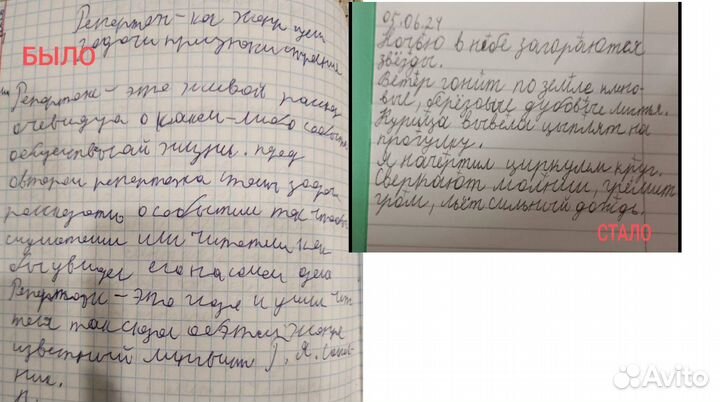 Репортаж - как жанр цели
задачи признаки строение
БЫЛО
Репортаж - это живой рассказ
очевидца о каком-либо событии
общественной жизни. перед
автором репортажа стоит задача
рассказать о событии так чтобы
слушатели или читатели как
бы увидели его на самом деле
Репортаж - это
так об этом жанре
известный лингвист Г. Я. Солга-
ник.
05.06.24
Ночью в небе загораются
звёзды.
Ветер гонит по земле клено-
вые, берёзовые дубовые листья.
Курица вывела цыплят на
прогулку.
Я начертил циркулем круг.
Сверкают молнии, гремит
гром, льёт сильный дождь.
СТАЛО
Avito